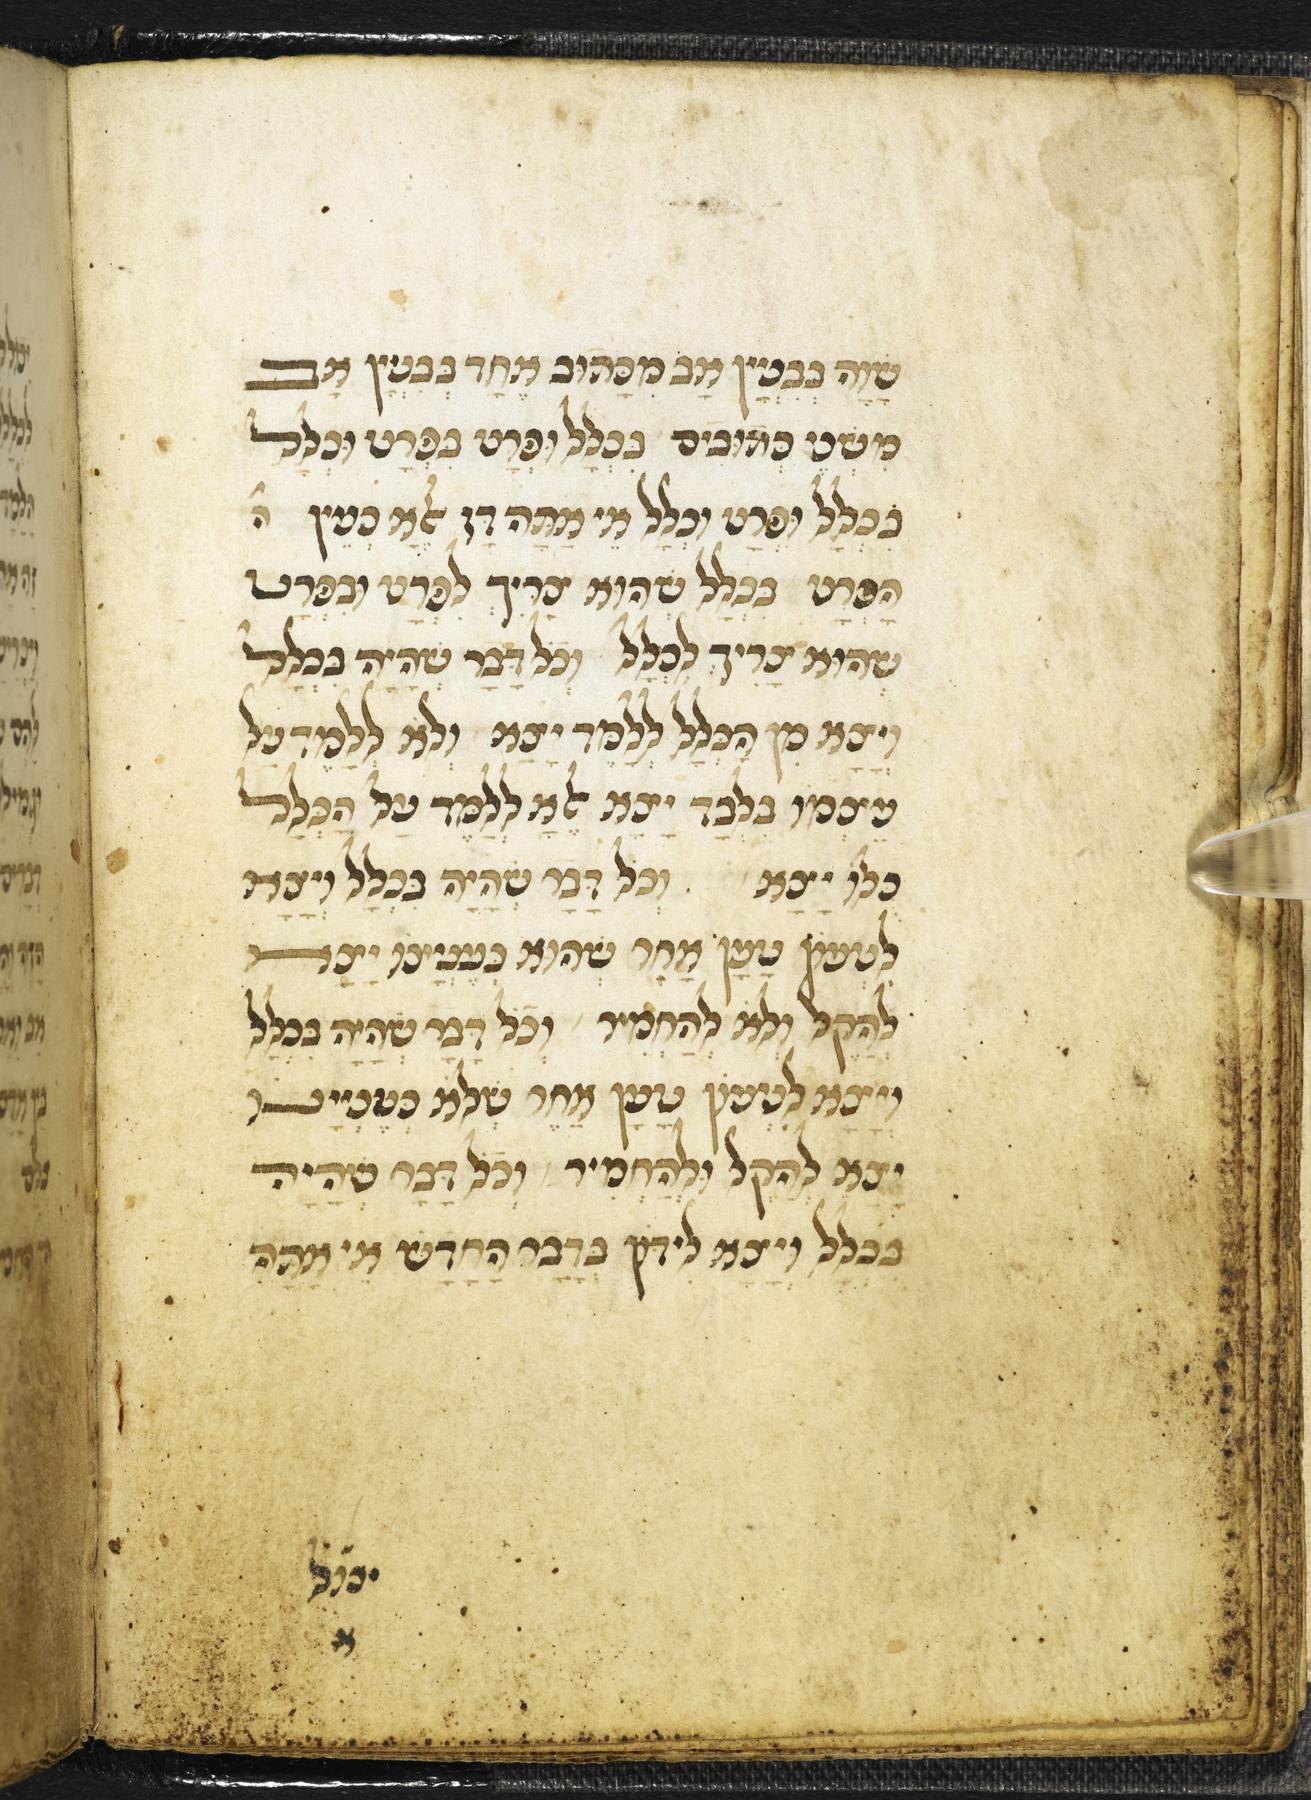 שָׁוָה בְּבִנְיָן אָב מִכָּתוּב אֶחָד בְּבִנְיָן אָב
מִשְּׁנֵי כְתוּבִים בִּכְלָל וּפְרָט בִּפְרָט וּכְלָל
בִּכְלָל וּפְרָט וּכְלָל אֵי אַתָּה דָן אֶלָּא כְּעֵין ה
הַפְּרָט בִּכְלָל שֶׁהוּא צָרִיךְ לִפְרָט וּבִפְרָט
שֶׁהוּא צָרִיךְ לִכְלָל וְכָל דָּבָר שֶׁהָיָה בִּכְלָל
וְיָצָא מִן הַכְּלָל לְלַמֵּד יָצָא וְלֹא לְלַמֵּד עַל
עַצְמוֹ בִּלְבָד יָצָא אֶלָּא לְלַמֵּד עַל הַכְּלָל
כֻּלּוֹ יָצָא וְכָל דָּבָר שֶׁהָיָה בִּכְלָל וְיָצָא
לִטְעוֹן טָעַן אַחֵר שֶׁהוּא כְּעִנְיָנוֹ יָצָא
לְהָקֵל וְלֹא לְהַחְמִיר וְכָל דָּבָר שֶׁהָיָה בִּכְלָל
וְיָצָא לִטְעוֹן טָעַן אַחֵר שֶׁלֹּא כְּעִנְיָינוֹ
יָצָא לְהָקֵל וּלְהַחְמִיר וְכָל דָּבָר שֶׁהָיָה
בִּכְלָל וְיָצָא לִידּוֹן בְּדָבָר הֶחָדָשׁ אִי אַתָּה
יכול
א